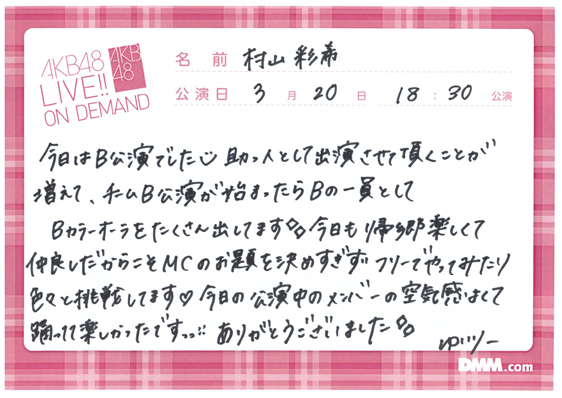 AKB48
LIVE!!
ON DEMAND
AKB
48
名前 村山彩希
公演日 3月20日 18:30公演
今日はB公演でした 助っ人として出演させて頂くことが
増えて、チームB公演が始まったらBの一員として
Bカラーオーラをたくさん出してます 今日も帰郷楽しくて
仲良しだからこそMCのお題を決めすぎずフリーでやってみたり
色々と挑戦してます♡ 今日の公演中のメンバーの空気感よくて
踊ってて楽しかったですっっ!! ありがとうございました
ゆいりー
DMM.com